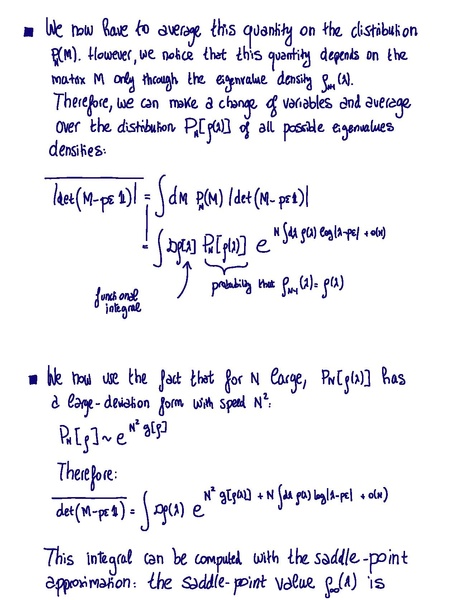 ■ We now have to average this quantity on the distribution
P_N(M). However, we notice that this quantity depends on the
matrix M only through the eigenvalue density ρ_{N-1}(λ).
Therefore, we can make a change of variables and average
over the distribution P_N[ρ(λ)] of all possible eigenvalues
densities:
\overline{|det(M-pε 𝟙)|} = ∫ dM P_N(M) |det(M-pε 𝟙)|
= ∫ Dρ[λ] P_N[ρ(λ)] e^{N ∫dλ ρ(λ) log|λ-pε| + o(N)}
functional
integral
probability that ρ_{N-1}(λ)= ρ(λ)
■ We now use the fact that for N large, P_N[ρ(λ)] has
a large-deviation form with speed N²:
P_N[ρ] ~ e^{N² g[ρ]}
Therefore:
\overline{det(M-pε 𝟙)} = ∫ Dρ(λ) e^{N² g[ρ(λ)] + N ∫dλ ρ(λ) log|λ-pε| + o(N)}
This integral can be computed with the saddle-point
approximation: the saddle-point value ρ_∞(λ) is